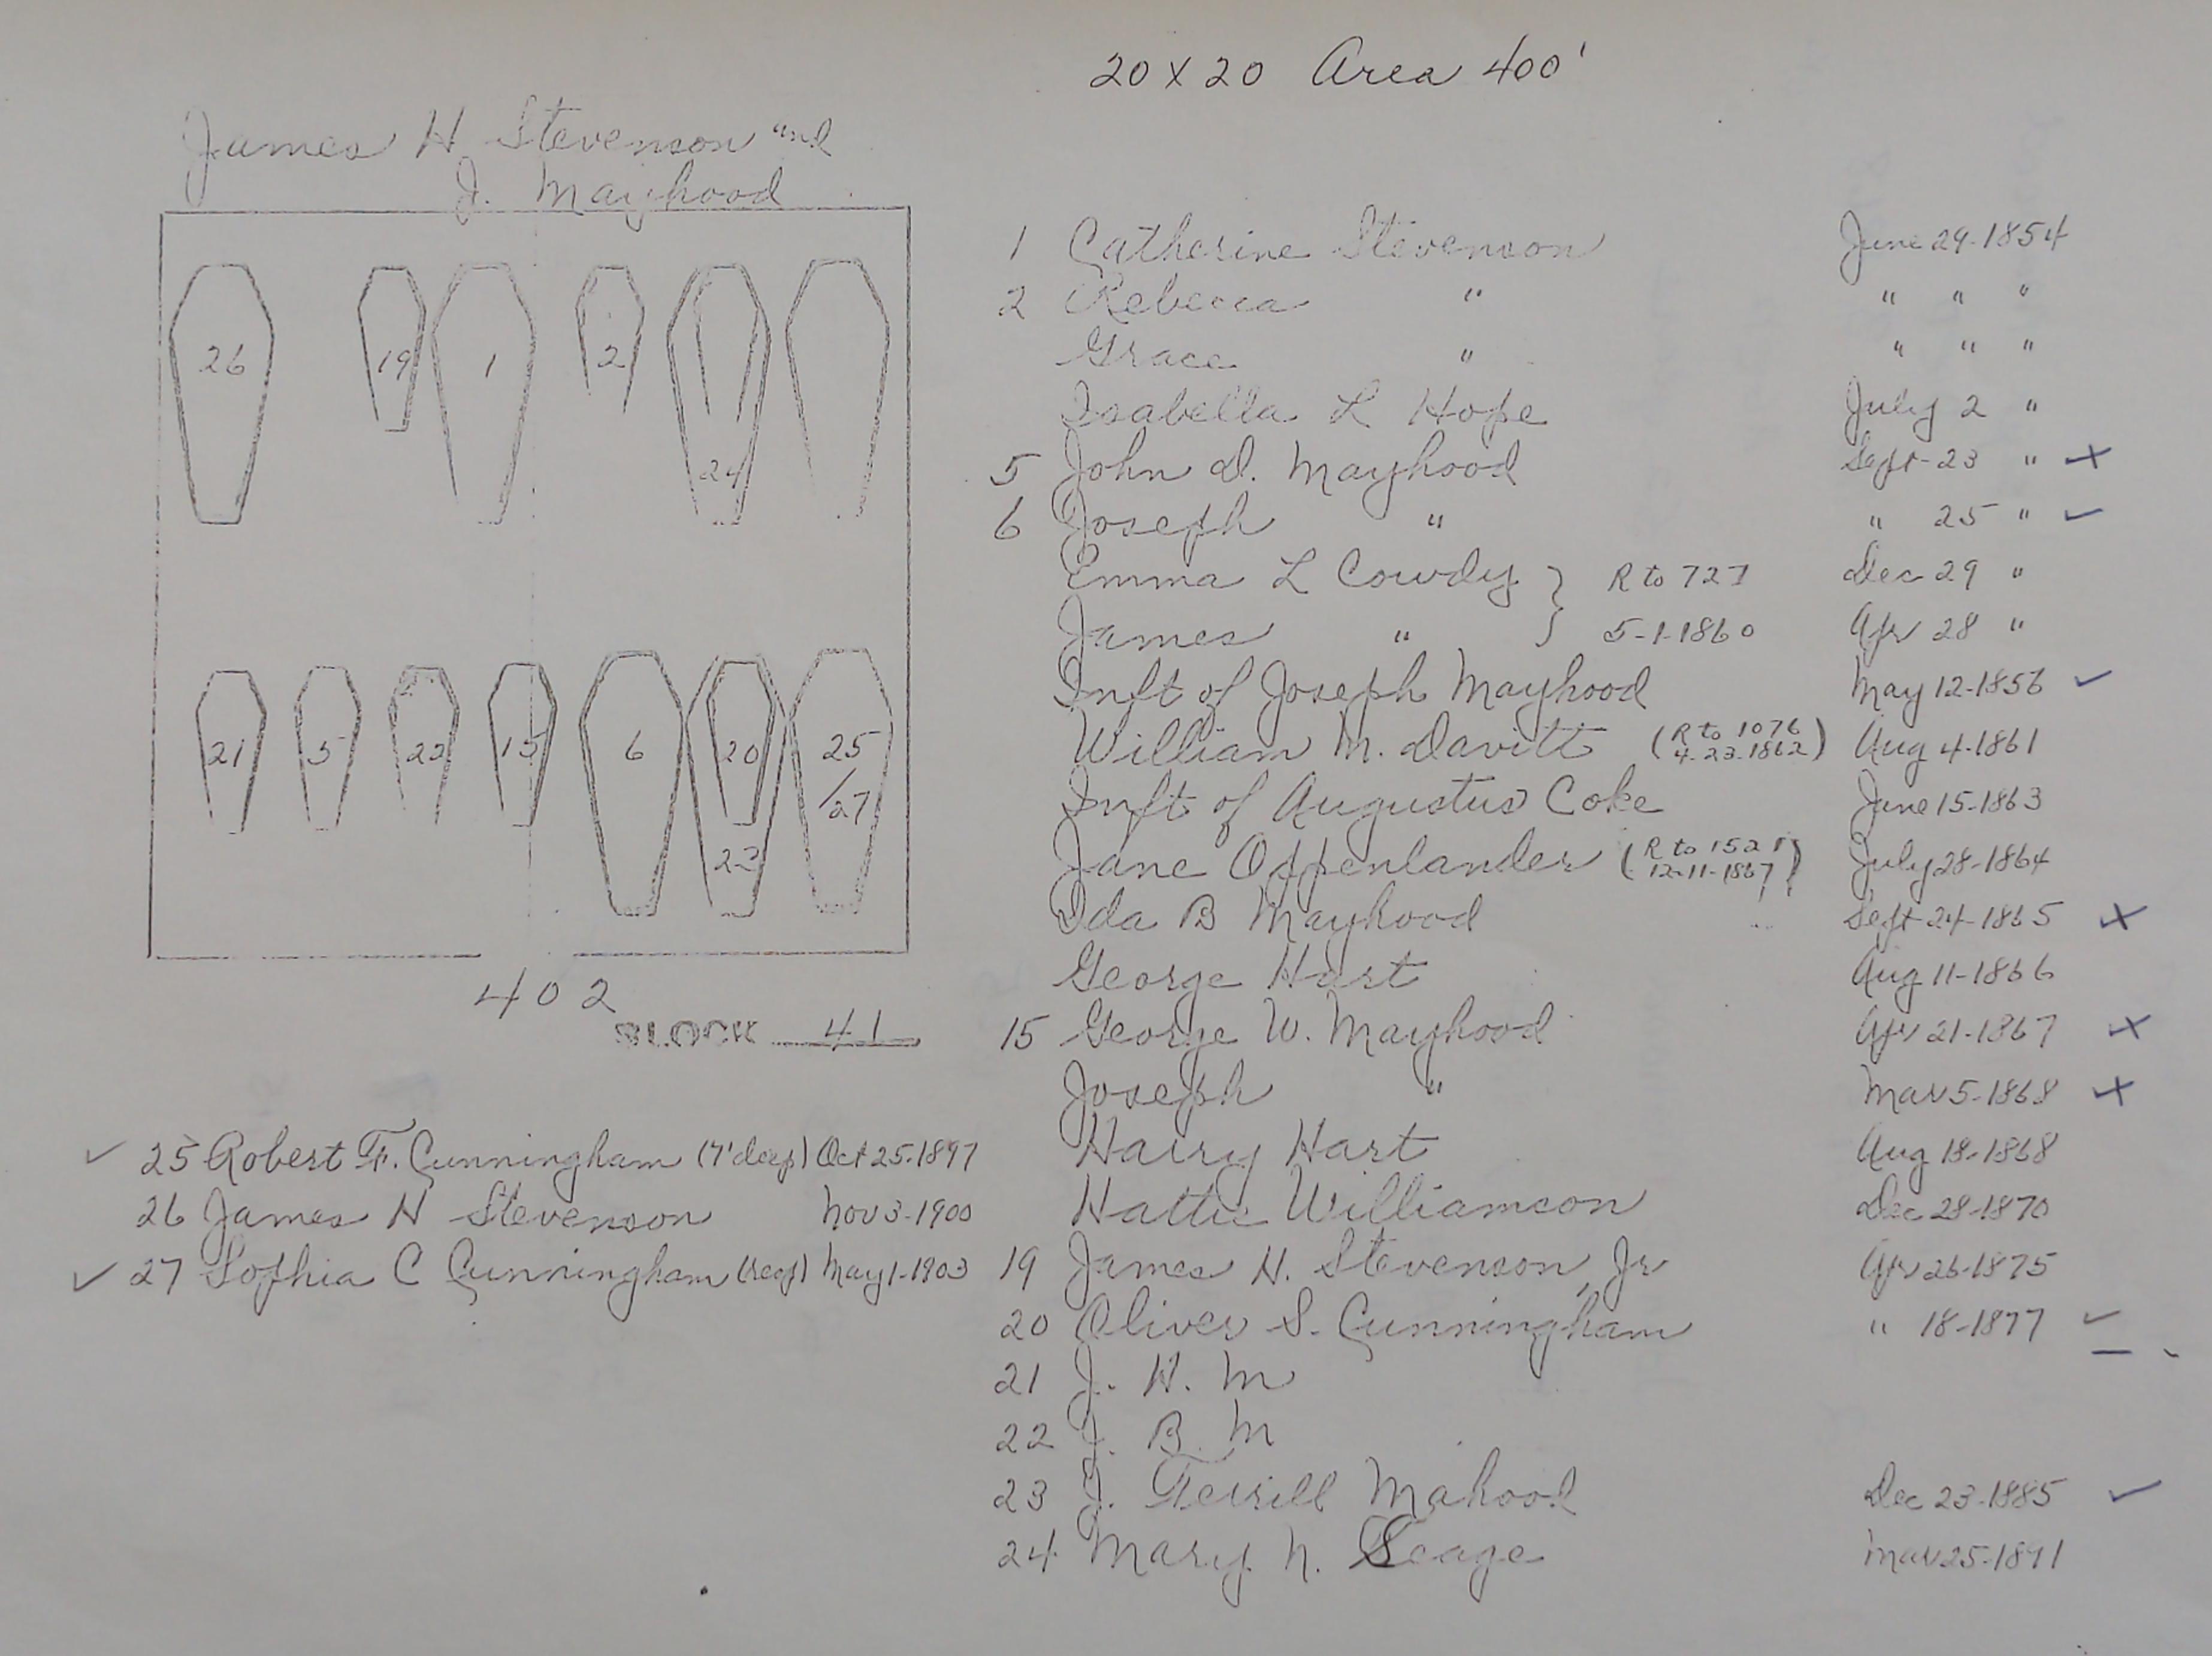 20 x 20 Area 400'
James H Stevenson and
J. Mayhood
26 19 1 2
24
21 5 22 15 6 20 25
/27
23
402
BLOCK 41
1 Catherine Stevenson June 29-1854
2 Rebecca " " " "
Grace " " " "
Isabella L Hope July 2 "
5 John D. Mayhood Sept-23 " x
6 Joseph " " 25 " ✓
Emma L Cowdy } R to 727 Dec 29 "
James " } 5-1-1860 Apr 28 "
Inft of Joseph Mayhood May 12-1856 ✓
William M. Davitt (R to 1076 4-23-1862) Aug 4-1861
Inft of Augustus Coke June 15-1863
Jane Oppenlander (R to 1521 12-11-1867) July 28-1864
Ida B Mayhood Sept 24-1865 x
George Hart Aug 11-1866
15 George W. Mayhood Apr 21-1867 x
Joseph " Mar 5-1868 x
Harry Hart Aug 18-1868
Hattie Williamson Dec 28-1870
19 James H. Stevenson, Jr Apr 26-1875
20 Oliver S. Cunningham " 18-1877 ✓
21 J. H. M
22 J. B. M
23 J. Terrill Mahood Dec 23-1885 ✓
24 Mary N. Seage Mar 25-1891
✓ 25 Robert F. Cunningham (7' deep) Oct 25-1897
26 James H Stevenson Nov 3-1900
✓ 27 Sophia C Cunningham May 1-1903